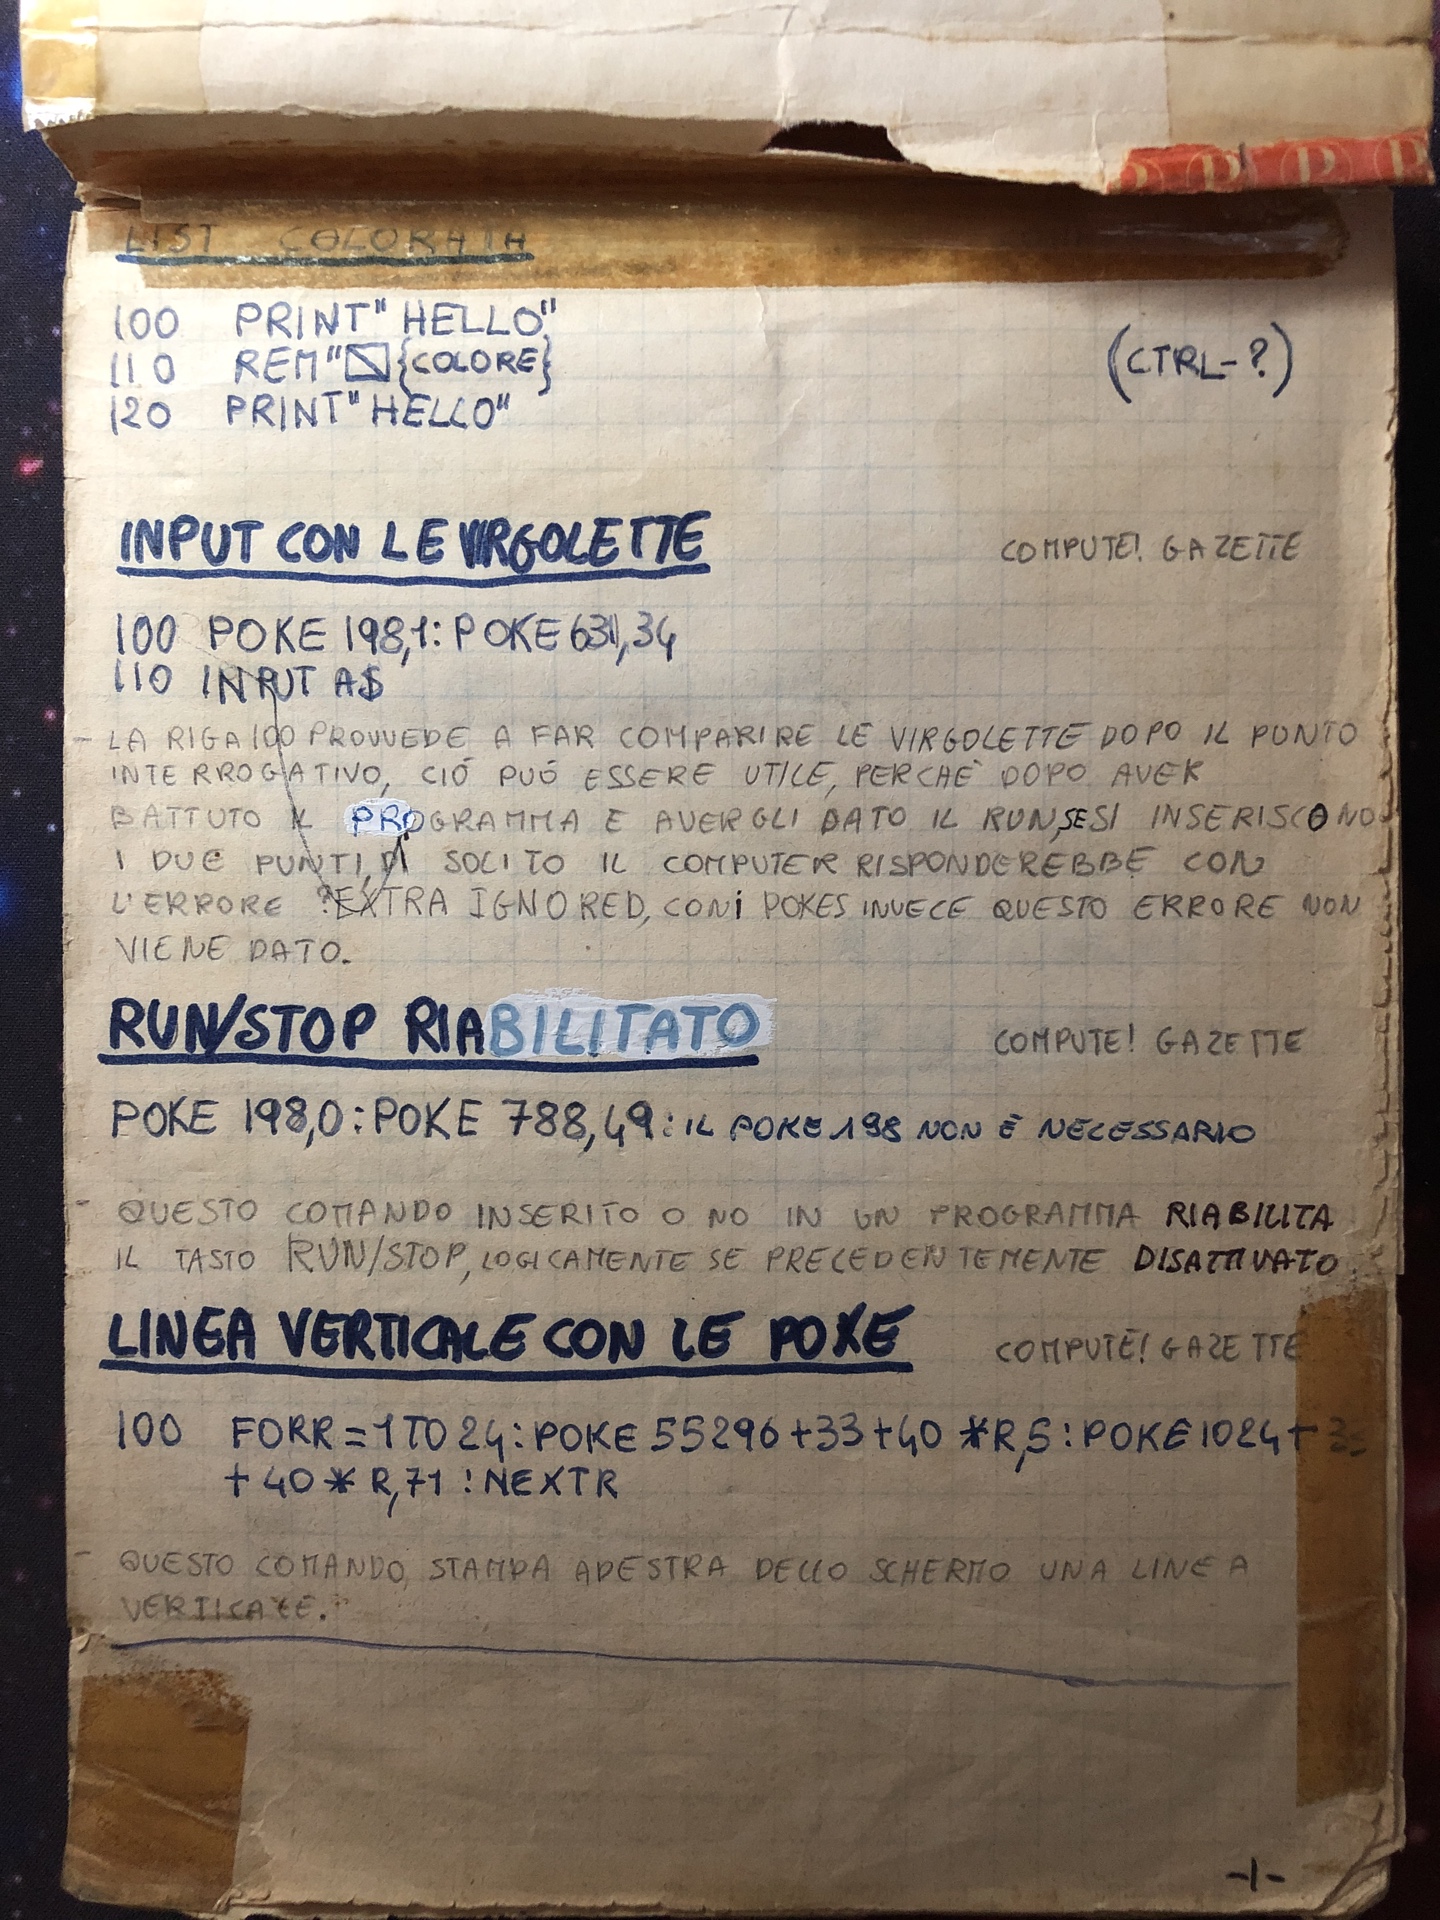 LIST COLORATA
100 PRINT"HELLO"
110 REM"{COLORE} (CTRL-?)
120 PRINT"HELLO"
INPUT CON LE VIRGOLETTE COMPUTE! GAZETTE
100 POKE 198,1:POKE 631,34
110 INPUT A$
- LA RIGA 100 PROVVEDE A FAR COMPARIRE LE VIRGOLETTE DOPO IL PUNTO
INTERROGATIVO, CIÓ PUÓ ESSERE UTILE, PERCHÈ DOPO AVER
BATTUTO IL PROGRAMMA E AVERGLI DATO IL RUN, SE SI INSERISCONO
I DUE PUNTI, DI SOLITO IL COMPUTER RISPONDEREBBE CON
L'ERRORE ?EXTRA IGNORED, CON i POKES INVECE QUESTO ERRORE NON
VIENE DATO.
RUN/STOP RIABILITATO COMPUTE! GAZETTE
POKE 198,0:POKE 788,49: IL POKE 198 NON È NECESSARIO
- QUESTO COMANDO INSERITO O NO IN UN PROGRAMMA RIABILITA
IL TASTO RUN/STOP, LOGICAMENTE SE PRECEDENTEMENTE DISATTIVATO.
LINEA VERTICALE CON LE POKE COMPUTE! GAZETTE
100 FORR=1TO24:POKE 55296+33+40*R,5:POKE1024+
+40*R,71:NEXTR
- QUESTO COMANDO, STAMPA A DESTRA DELLO SCHERMO UNA LINEA
VERTICALE.
-1-